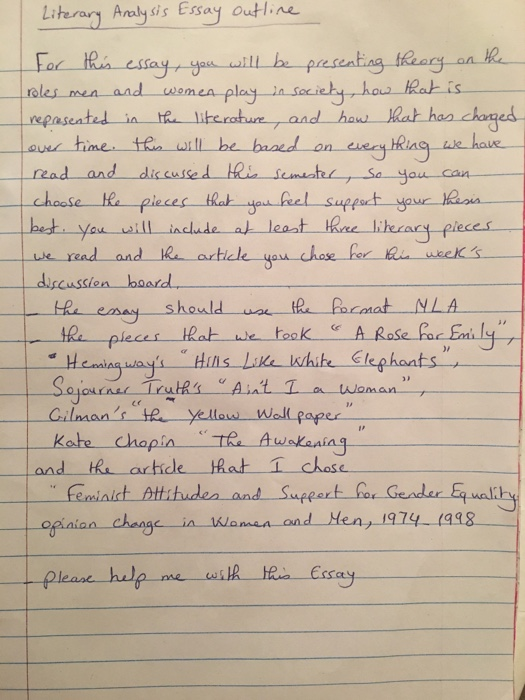 Literary Analysis Essay outline
For this essay, you will be presenting theory on the
roles men and women play in society, how that is
represented in the literature, and how that has changed
over time. this will be based on everything we have
read and discussed this semester, so you can
choose the pieces that you feel support your thesis
best. you will include at least three literary pieces
we read and the article you chose for this week's
discussion board.
- the essay should use the format MLA
- the pieces that we took " A Rose for Emily",
" Hemingway's "Hills Like White Elephants",
Sojourner Truth's "Ain't I a Woman",
Gilman's "the Yellow Wall paper"
Kate Chopin "The Awakening"
and the article that I chose
"Feminist Attitudes and Support for Gender Equality
opinion change in Women and Men, 1974-1998
- please help me with this Essay